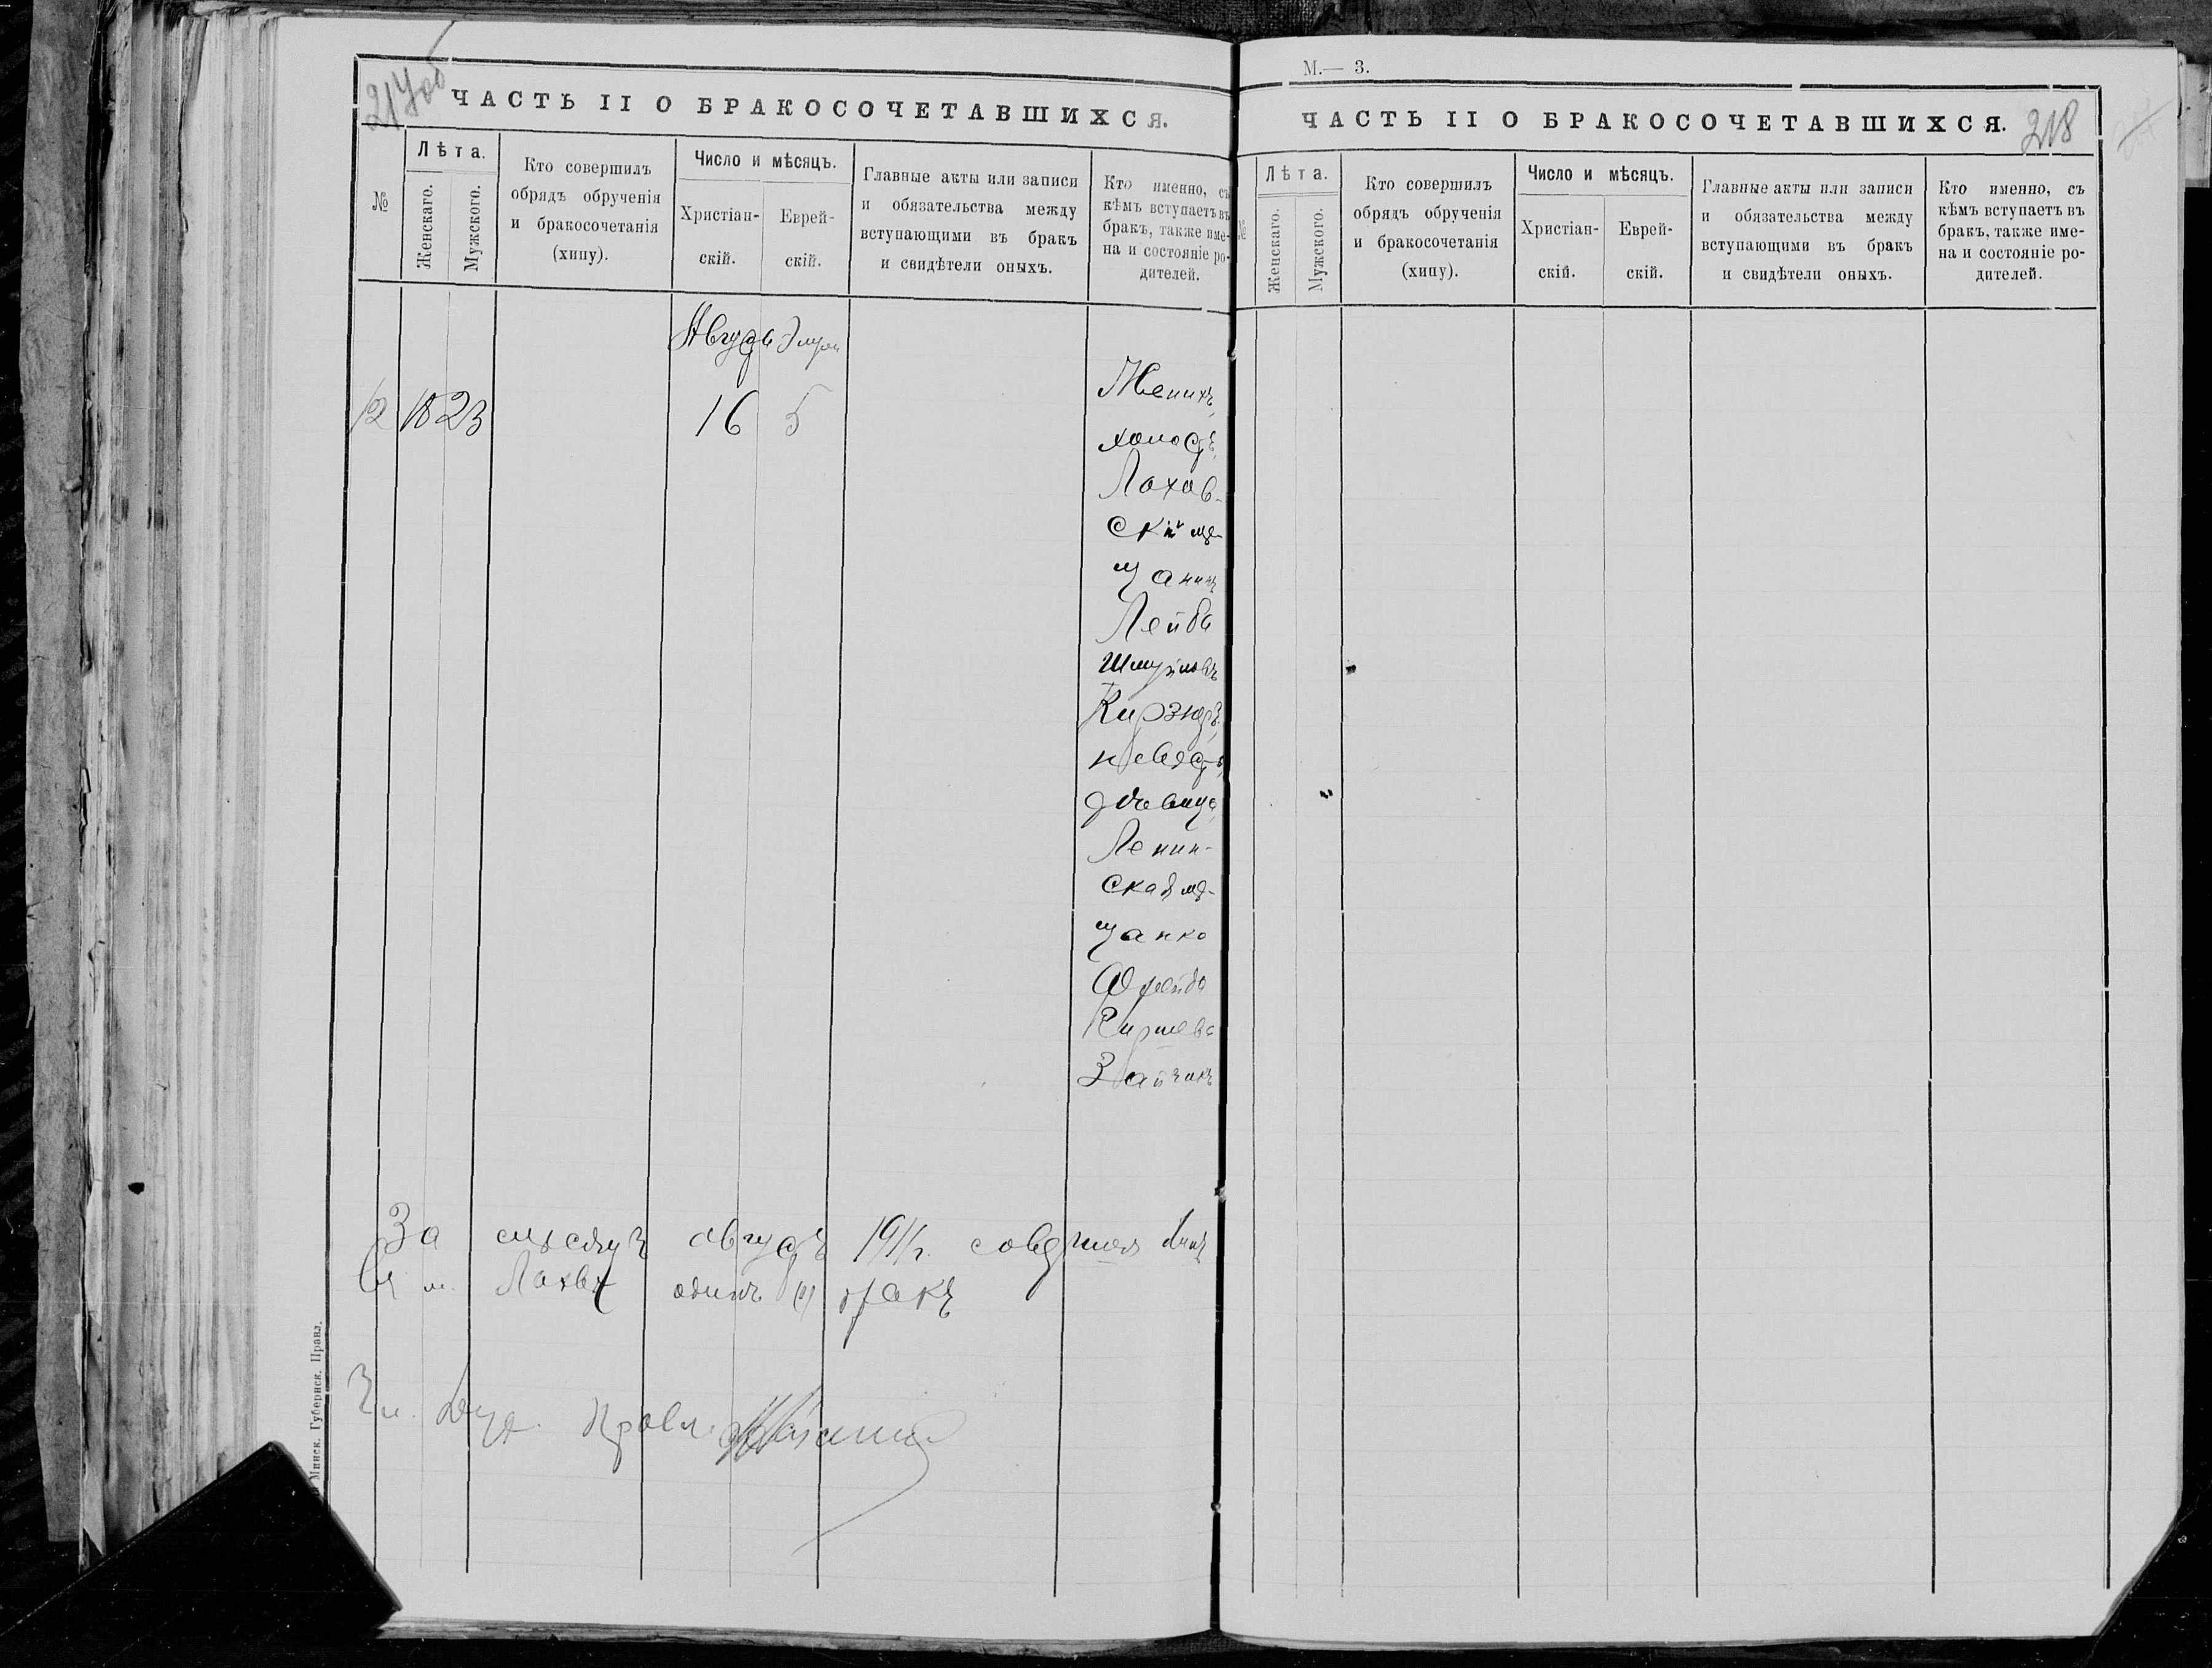 217об
ЧАСТЬ II О БРАКОСОЧЕТАВШИХСЯ.
№
Лѣта.
Женскаго.
Мужскаго.
Кто совершилъ
обрядъ обрученія
и бракосочетанія
(хипу).
Число и мѣсяцъ.
Христіан-
скій.
Еврей-
скій.
Главные акты или записи
и обязательства между
вступающими въ бракъ
и свидѣтели оныхъ.
Кто именно, съ
кѣмъ вступаетъ въ
бракъ, также име-
на и состояніе ро-
дителей.
Августъ
12 18 23 16 5
Женихъ,
холостъ,
Лахов-
скій мѣ-
щанинъ
Лейба
Шмуйловъ
Кирзнеръ,
невѣста,
дѣвица,
Ленин-
ская мѣ-
щанка
Фрейда
Гиршева
Зайчикъ
За мѣсяцъ августъ 1911 г. совершенъ
въ м. Лахвѣ одинъ (1) бракъ
Чл. Дух. Правл.
Минск. Губернск. Правл.
М.— 3.
ЧАСТЬ II О БРАКОСОЧЕТАВШИХСЯ.
218
№
Лѣта.
Женскаго.
Мужскаго.
Кто совершилъ
обрядъ обрученія
и бракосочетанія
(хипу).
Число и мѣсяцъ.
Христіан-
скій.
Еврей-
скій.
Главные акты или записи
и обязательства между
вступающими въ бракъ
и свидѣтели оныхъ.
Кто именно, съ
кѣмъ вступаетъ въ
бракъ, также име-
на и состояніе ро-
дителей.